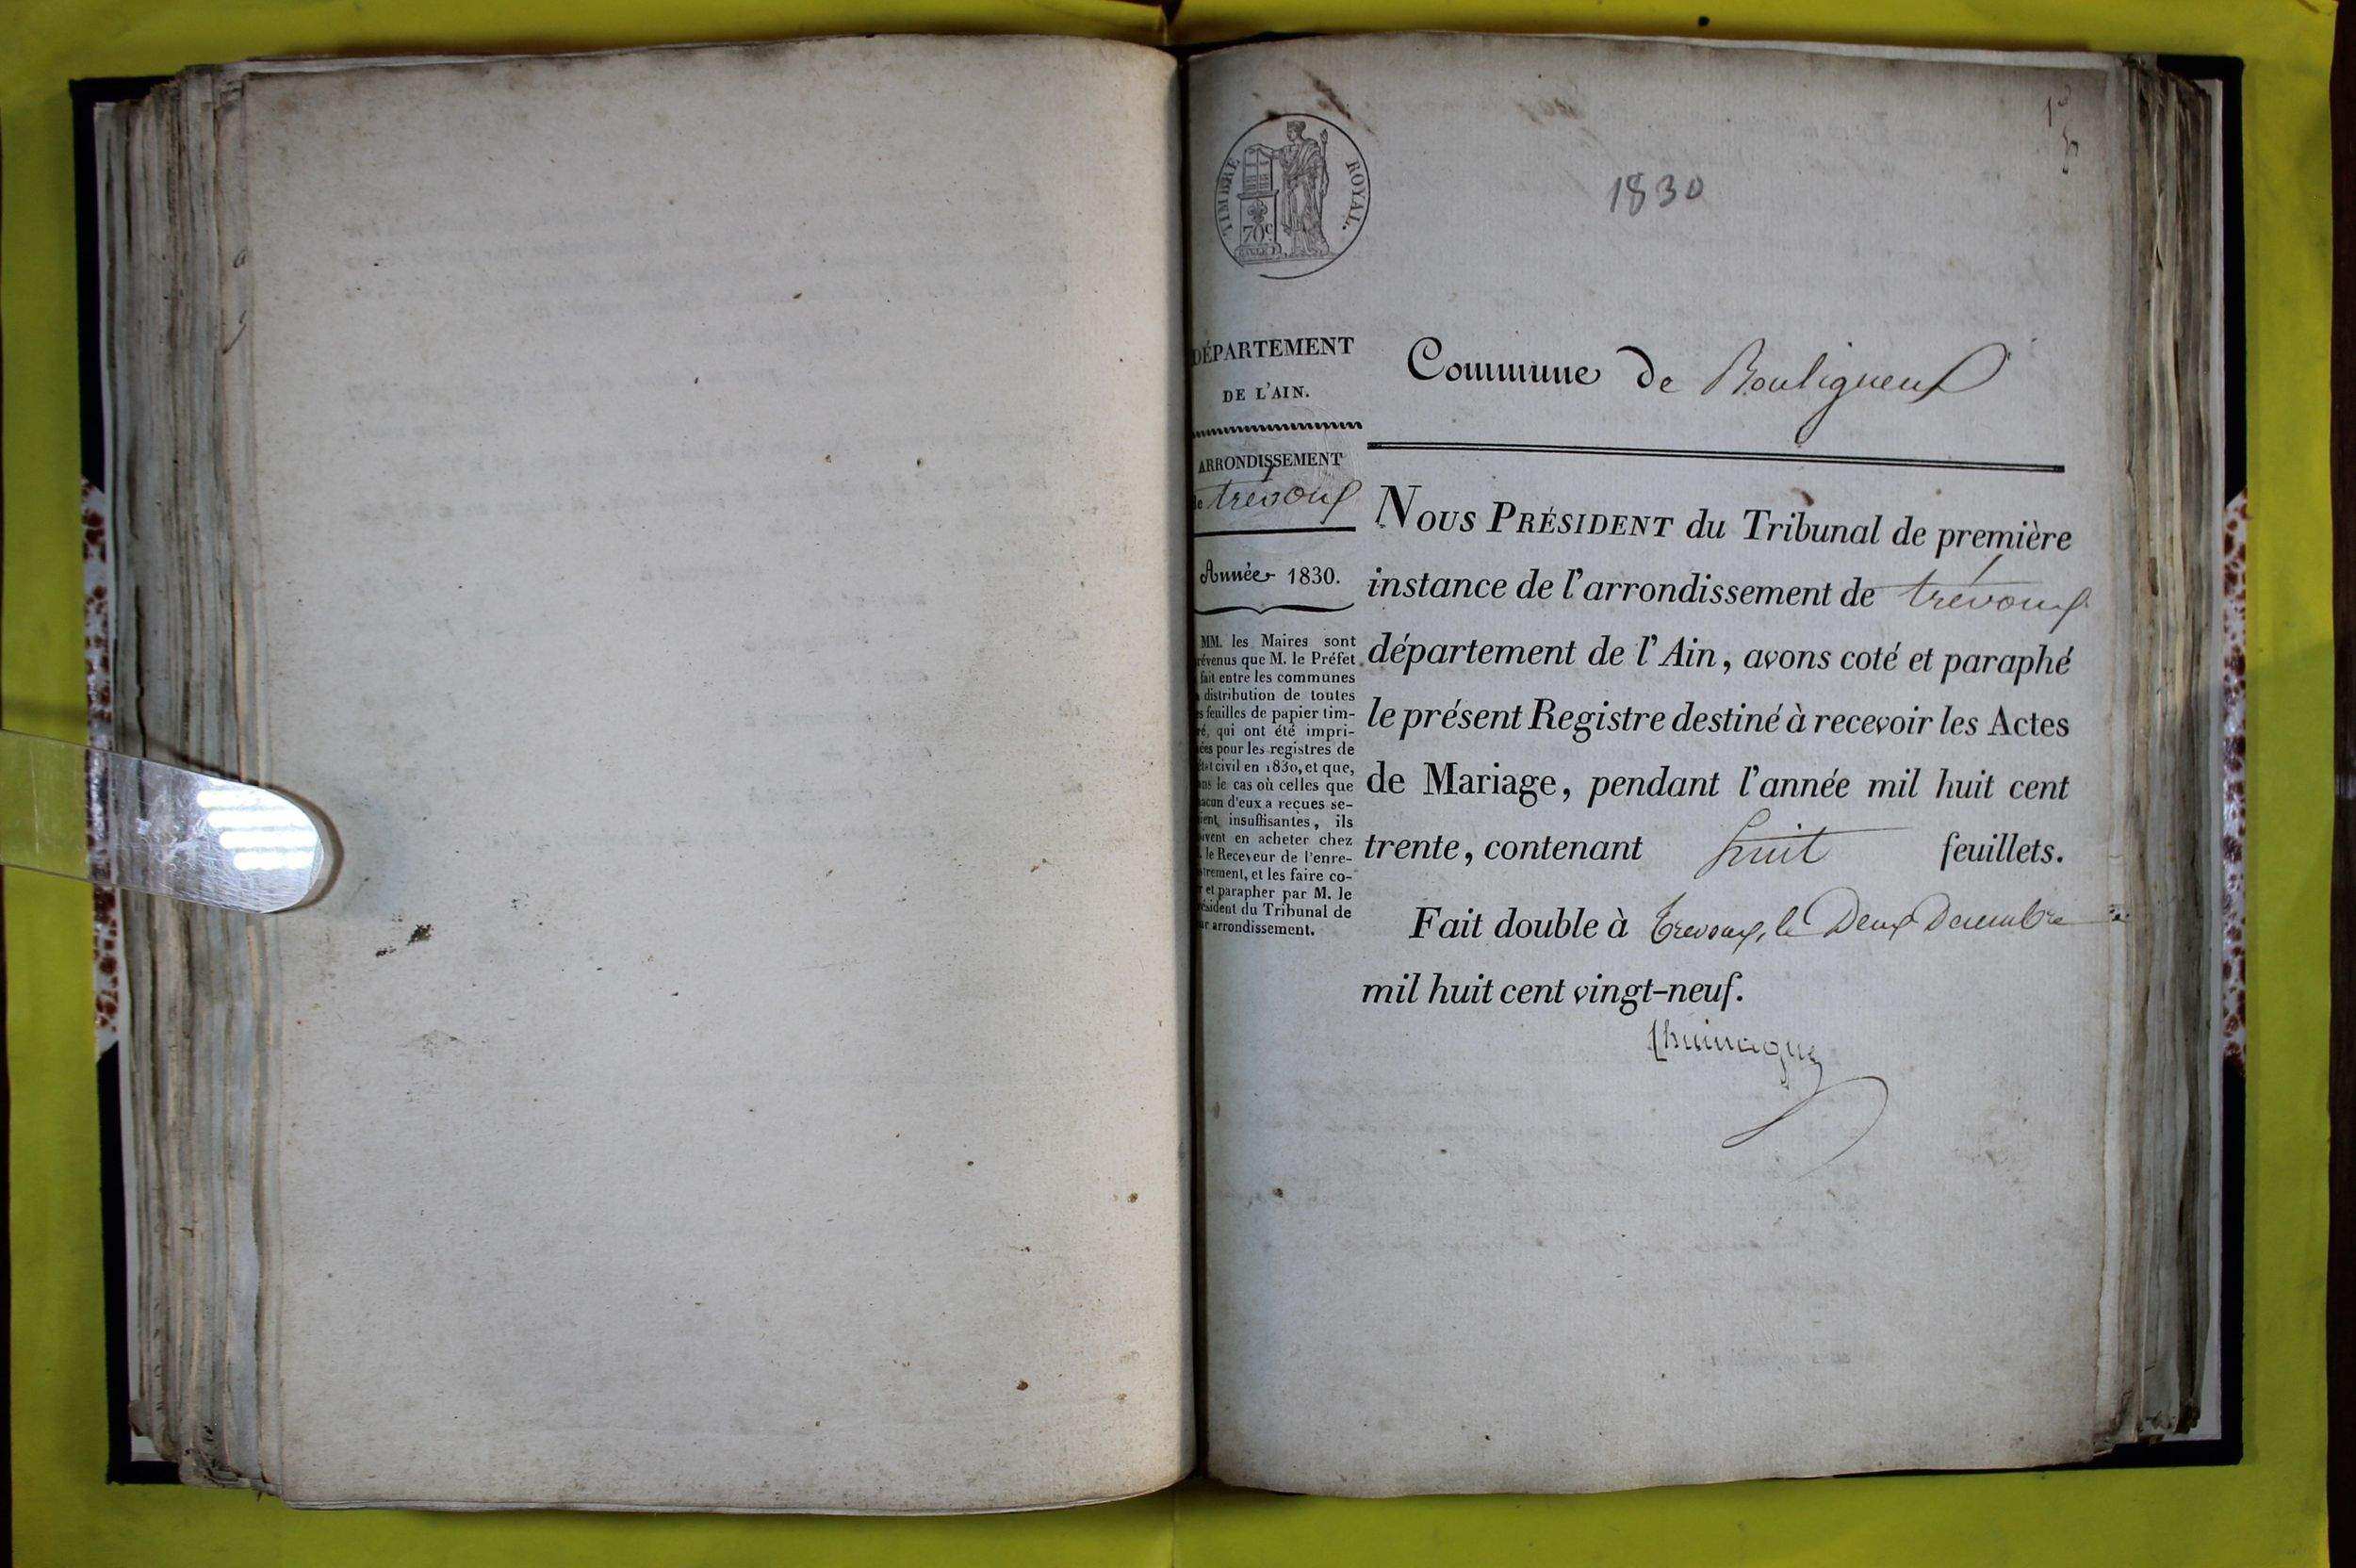 1830
TIMBRE ROYAL.
70 c
DÉPARTEMENT
DE L'AIN.
ARRONDISSEMENT
de trévoux
Année 1830.
MM. les Maires sont
révenus que M. le Préfet
fait entre les communes
distribution de toutes
s feuilles de papier tim-
ré, qui ont été impri-
ées pour les registres de
état civil en 1830, et que,
ns le cas où celles que
acun d'eux a reçues se-
ient insuffisantes, ils
uvent en acheter chez
. le Receveur de l'enre-
strement, et les faire co-
r et parapher par M. le
ésident du Tribunal de
ur arrondissement.
Commune de Bouligneux
NOUS PRÉSIDENT du Tribunal de première
instance de l'arrondissement de trévoux
département de l'Ain, avons coté et paraphé
le présent Registre destiné à recevoir les Actes
de Mariage, pendant l'année mil huit cent
trente, contenant huit feuillets.
Fait double à trevoux, le Deux Decembre
mil huit cent vingt-neuf.